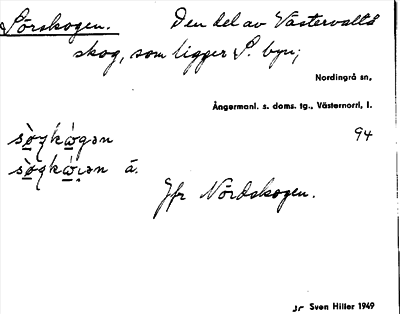 Sörskogen. Den del av Västervalls
skog, som ligger S. byn;
Nordingrå sn,
Ångermanl. s. doms. tg., Västernorrl, l.
94
Jfr Nördskogen.
Sven Hiller 1949